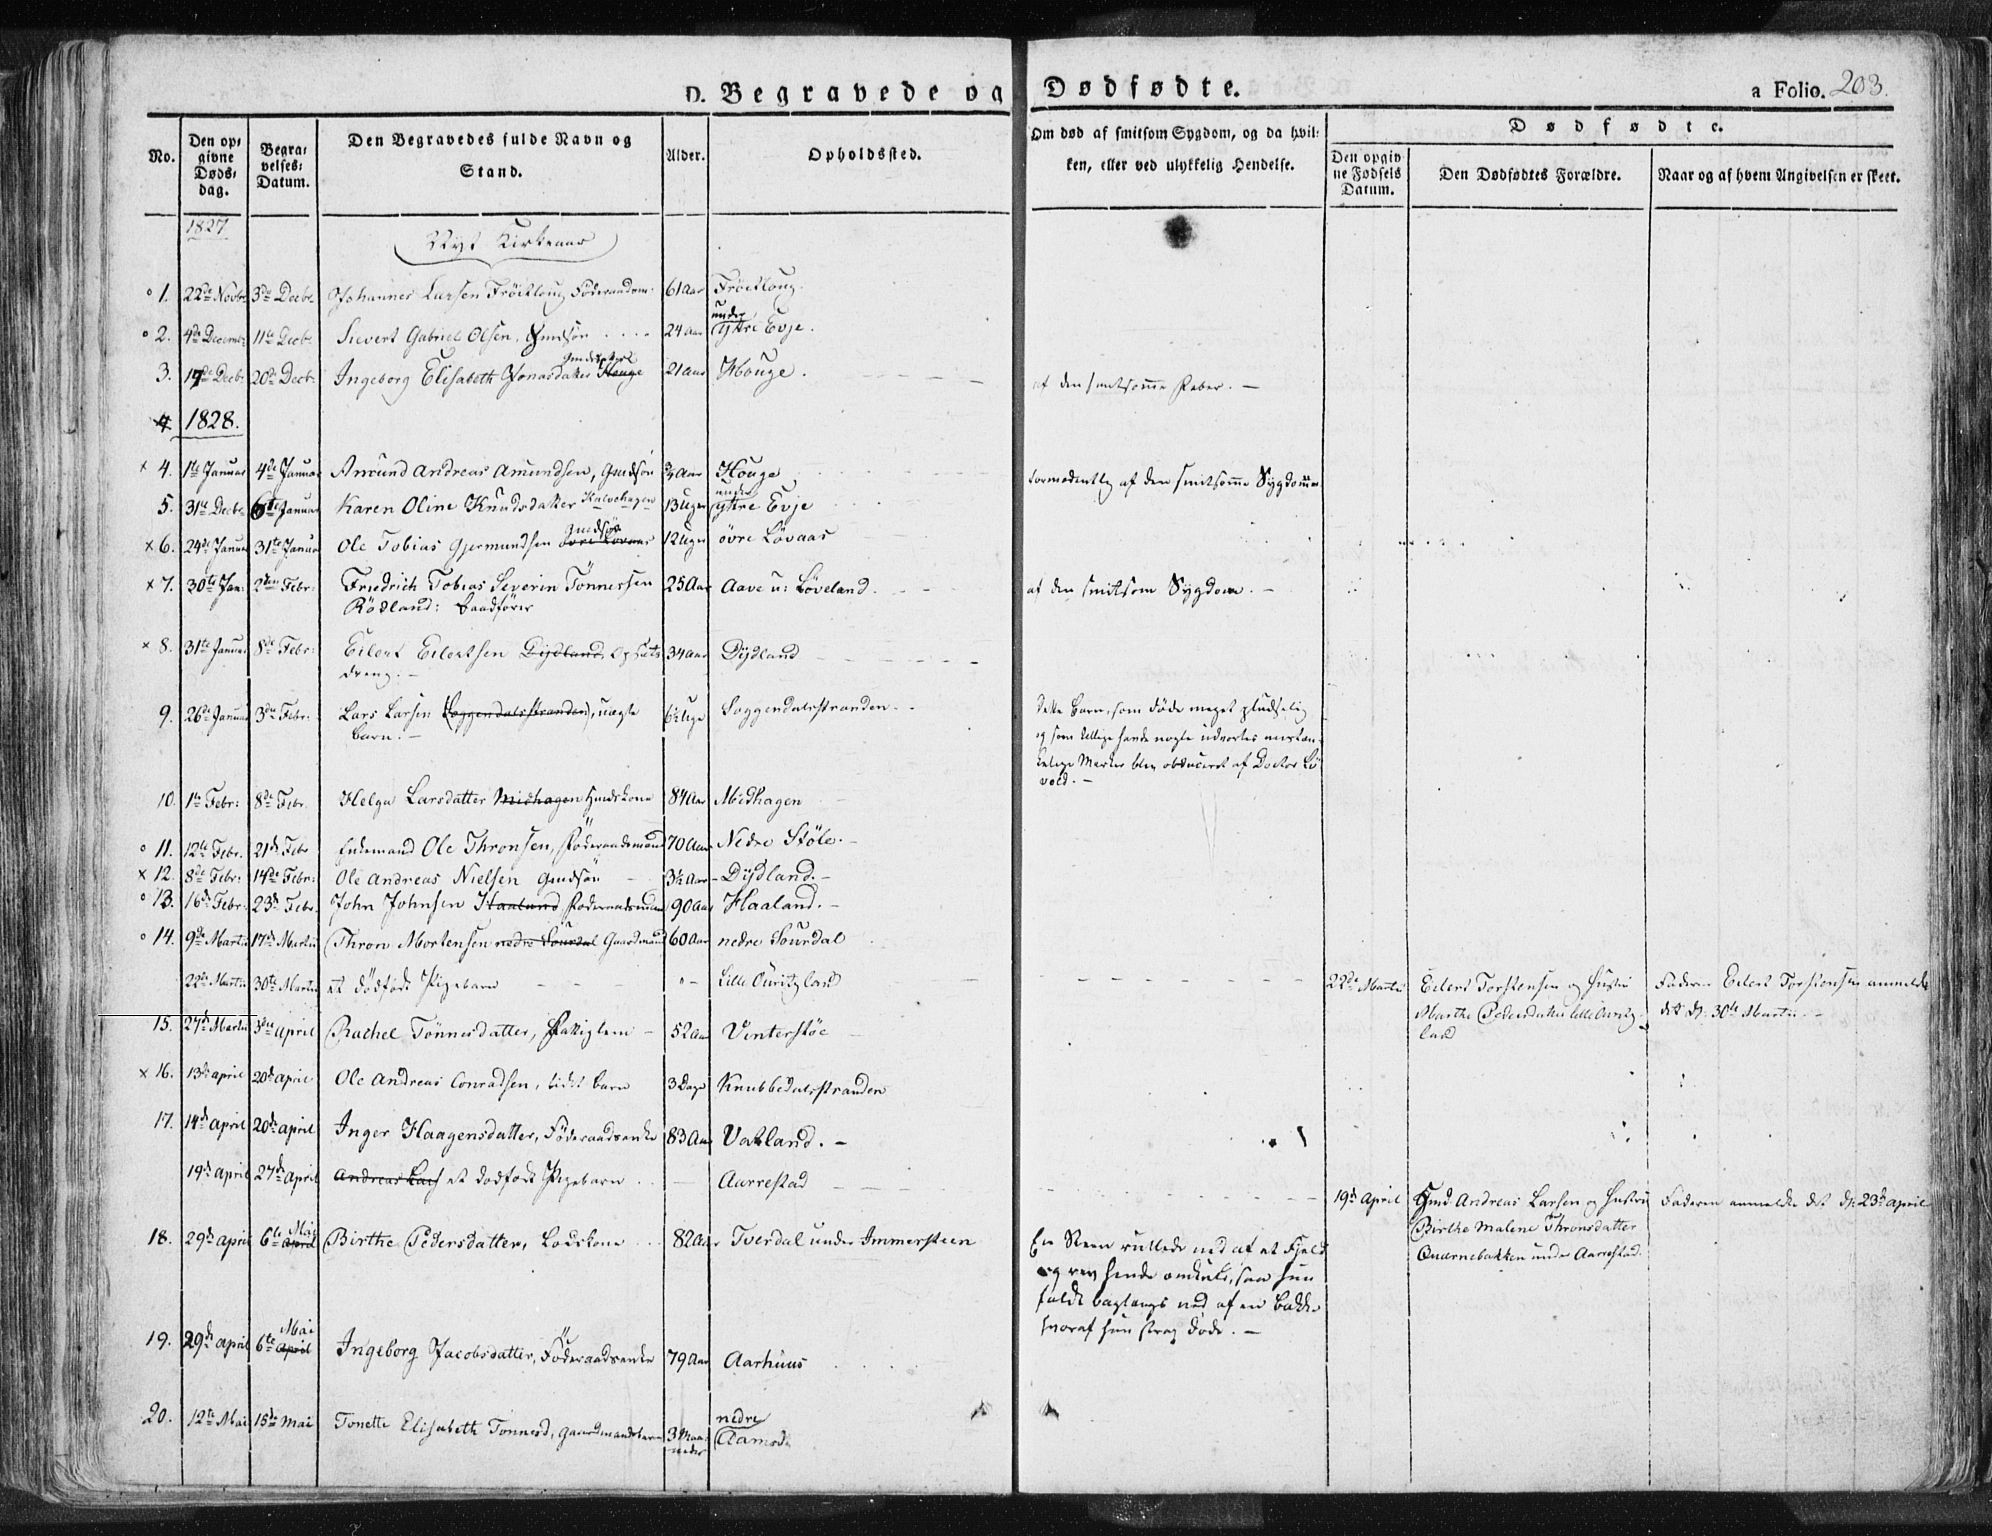 D. Begravede og Dødfødte. a Folio. 203.
No. Den opgivne Dødsdag. Begravelses Datum. Den Begravedes fulde Navn og Stand. Alder. Opholdssted. Om død af smitsom Sygdom, og da hvilken, eller ved ulykkelig Hendelse. Dødfødte.
Den opgivne Fødsels Datum. Den Dødfødtes Forældre. Naar og af hvem Angivelsen er skeet.
1827
Nyt Kirkeaar
1. 22de Novbr 3de Decbr Johannes Larsen Fröitloug Föderaadsm. 61 Aar Fröitloug
2. 4de Decembr 11te Decbr Sievert Gabriel Olsen, Gmdsön 24 Aar under Yttre Evje.
3. 17de Decbr 20de Decbr Ingeborg Elisabeth Jonasdatter Houge 21 Aar Houge. af den smitsomme Feber. —
1828.
4. 1te Januar 4de Januar Amund Andreas Amundsen, Gmdsön 3/4 Aar Houge formodentlig af den smitsomme Sygdomm
5. 31te Decbr 6te Januar Karen Oline Knudsdatter Kalvehagen 13 Uger under Yttre Evje
x 6. 24de Januar 31te Januar Ole Tobias Gjermundsen övre Lövaas Gmdsön 12 Uger övre Lövaas
x 7. 30te Jan: 2den Febr: Friedrich Tobias Severin Tönnessen 25 Aar Aave u: Löveland. af den smitsom Sygdom. —
Rödland: Baadförer
x 8. 31te Januar 8de Febr: Eilert Eilertsen Dydland, Opfost- 34 Aar Dydland
dreng. —
9. 26de Januar 3die Febr: Lars Larsen (Soggendalsstranden), uægte 6½ Uge Soggendalsstranden. Dette Barn, som döde meget pludselig
Barn. — og som tillige havde nogle udvortes mistæn-
kelige Mærker blev obduceret af Doctor Lö
vold. —
10. 1te Febr: 8de Febr. Helga Larsdatter Midhagen Huuskone 84 Aar Midhagen
11. 12te Febr. 21de Febr Enkemand Ole Thronsen, Föderaadsmand 70 Aar Nedre Stöle. —
x 12. 8de Febr: 14de Febr: Ole Andreas Nielsen Gmdsön 3½ Aar Dydland. —
13. 16de Febr: 23de Febr. John Johnsen Haaland Föderaadsmand 90 Aar Haaland. —
14. 9de Martii 17de Martii Thron Mortensen nedre Sourdal Gaardmand 60 Aar nedre Sourdal
22de Martii 30te Martii et dödfödt Pigebarn "— Lille Ouritzland 22de Martii Eilert Torstensen og Hustru Faderen Eilert Torstensen anmeldte
Marthe Pedersdatter Lille Ouritz- det d. 30te Martii. —
land
15. 27de Martii 3die April Rachel Tönnesdatter, Fattiglem — 52 Aar Vinterstöe
x 16. 13de April 20de April Ole Andreas Conradsen, lidet Barn 3 Dage Knubbedalsstranden
17. 14de April 20de April Inger Haagensdatter, Föderaadsenke 83 Aar Vatland. —
19de April 27de April Andreas Lars et dodfödt Pigebarn — Aarrestad 19de April Gmd. Andreas Larsen og Hustru Faderen anmeldte det d. 23de April
Birthe Malene Thronsdatter
Quærnebakken under Aarrestad.
18. 29de April 6te April Mai Birthe Pedersdatter, Lodskone 82 Aar Tverdal under Immersteen En Steen rullede ned af et Fjeld
og rev hende omkuld, saa hun
faldt baglangs ned af en Bakke
hvoraf hun strax döde. —
19. 29de April 6te April Mai Ingeborg Jacobsdatter, Föderaadsenke 79 Aar Aarhuus
20. 12te Mai 15de Mai Tonette Elisabeth Tonnesd, Gaardmandsbarn 3 Maaneder nedre Aamodt